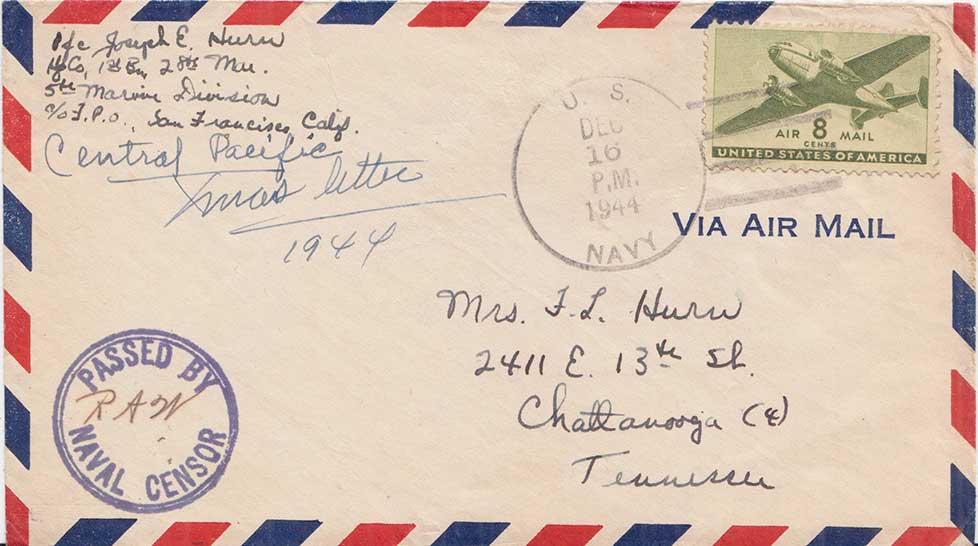 Pfc Joseph E. Hurn
Hq Co, 1st Bn, 28th Mar.
5th Marine Division
c/o F.P.O., San Francisco, Calif.
Central Pacific
Xmas letter
1944
U. S.
DEC
16
P.M.
1944
NAVY
AIR 8 MAIL
CENTS
UNITED STATES OF AMERICA
VIA AIR MAIL
Mrs. F. L. Hurn
2411 E. 13th St.
Chattanooga (4)
Tennessee
PASSED BY
RAW
NAVAL CENSOR